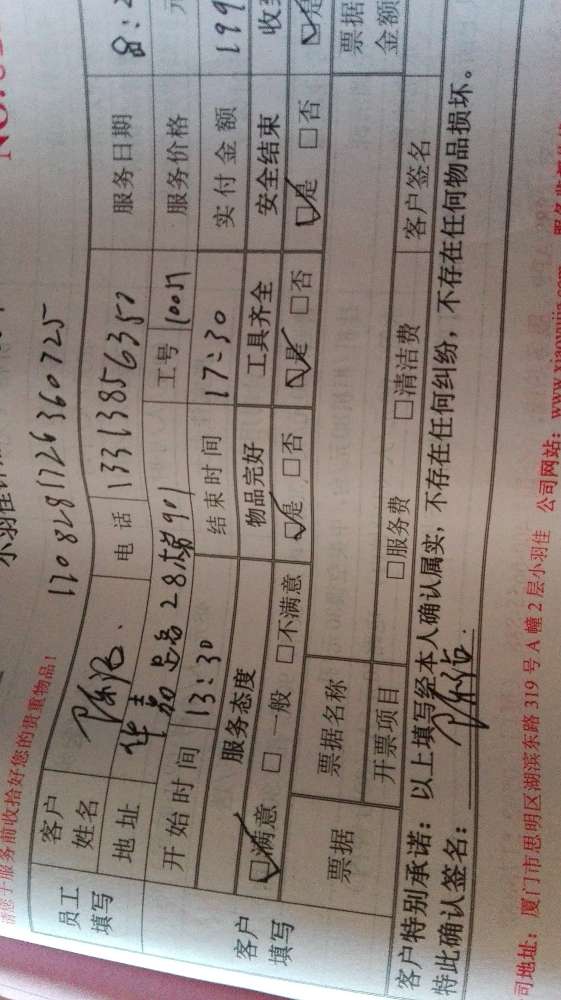 请您于服务前收拾好您的贵重物品！
1708281726360725
员工填写
客户姓名 电话 13313856357 服务日期
地址 28梯901 工号 服务价格
开始时间 13:30 结束时间 17:30 实付金额 199
客户填写
服务态度 物品完好 工具齐全 安全结束
☑满意 □一般 □不满意 ☑是 □否 ☑是 □否 ☑是 □否 ☑是
票据 票据名称 票据金额
开票项目 □服务费 □清洁费 客户签名
客户特别承诺：以上填写经本人确认属实，不存在任何纠纷，不存在任何物品损坏。
特此确认签名：
司地址：厦门市思明区湖滨东路319号A幢2层小羽佳 公司网站：